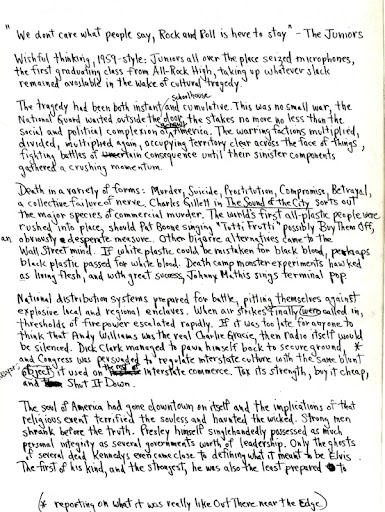 "We dont care what people say, Rock and Roll is here to stay" - The Juniors
Wishful thinking, 1959-style: Juniors all over the place seized microphones,
the first graduating class from All-Rock High, taking up whatever slack
remained available in the wake of cultural tragedy.
The tragedy had been both instant and cumulative. This was no small war, the
schoolhouse
National Guard waited outside the door, the stakes no more no less than the
social and political complexion of America. The warring factions multiplied,
divided, multiplied again, occupying territory clear across the face of things,
fighting battles of uncertain consequence until their sinister components
gathered a crushing momentum.
Death in a variety of forms: Murder, Suicide, Prostitution, Compromise, Betrayal,
a collective failure of nerve. Charles Gillett in The Sound of the City sorts out
the major species of commercial murder. The world's first all-plastic people were
rushed into place, should Pat Boone singing "Tutti Frutti" possibly Buy Them Off,
an obviously desperate measure. Other bizarre alternatives came to the
Wall Street mind. If white plastic could be mistaken for black blood, perhaps
black plastic passed for white blood. Death camp monster experiments hawked
as living flesh, and with great success, Johnny Mathis sings terminal pop.
National distribution systems prepared for battle, pitting themselves against
explosive local and regional enclaves. When air strikes finally were called in,
thresholds of firepower escalated rapidly. If it was too late for anyone to
think that Andy Williams was the real Charlie Gracie, then radio itself would
be silenced. Dick Clark managed to pawn himself back to secure ground, *
and Congress was persuaded to regulate interstate culture with the same blunt
object it used on the rest interstate commerce. Tax its strength, buy it cheap,
and Shut It Down.
The soul of America had gone downtown on itself and the implications of that
religious event terrified the souless and haunted the wicked. Strong men
shrank before the truth. Presley himself singlehandedly possessed as much
personal integrity as several governments worth of leadership. Only the ghosts
of several dead Kennedys even came close to defining what it meant to be Elvis.
The first of his kind, and the strongest, he was also the least prepared to
(* reporting on what it was really like Out There near the Edge)